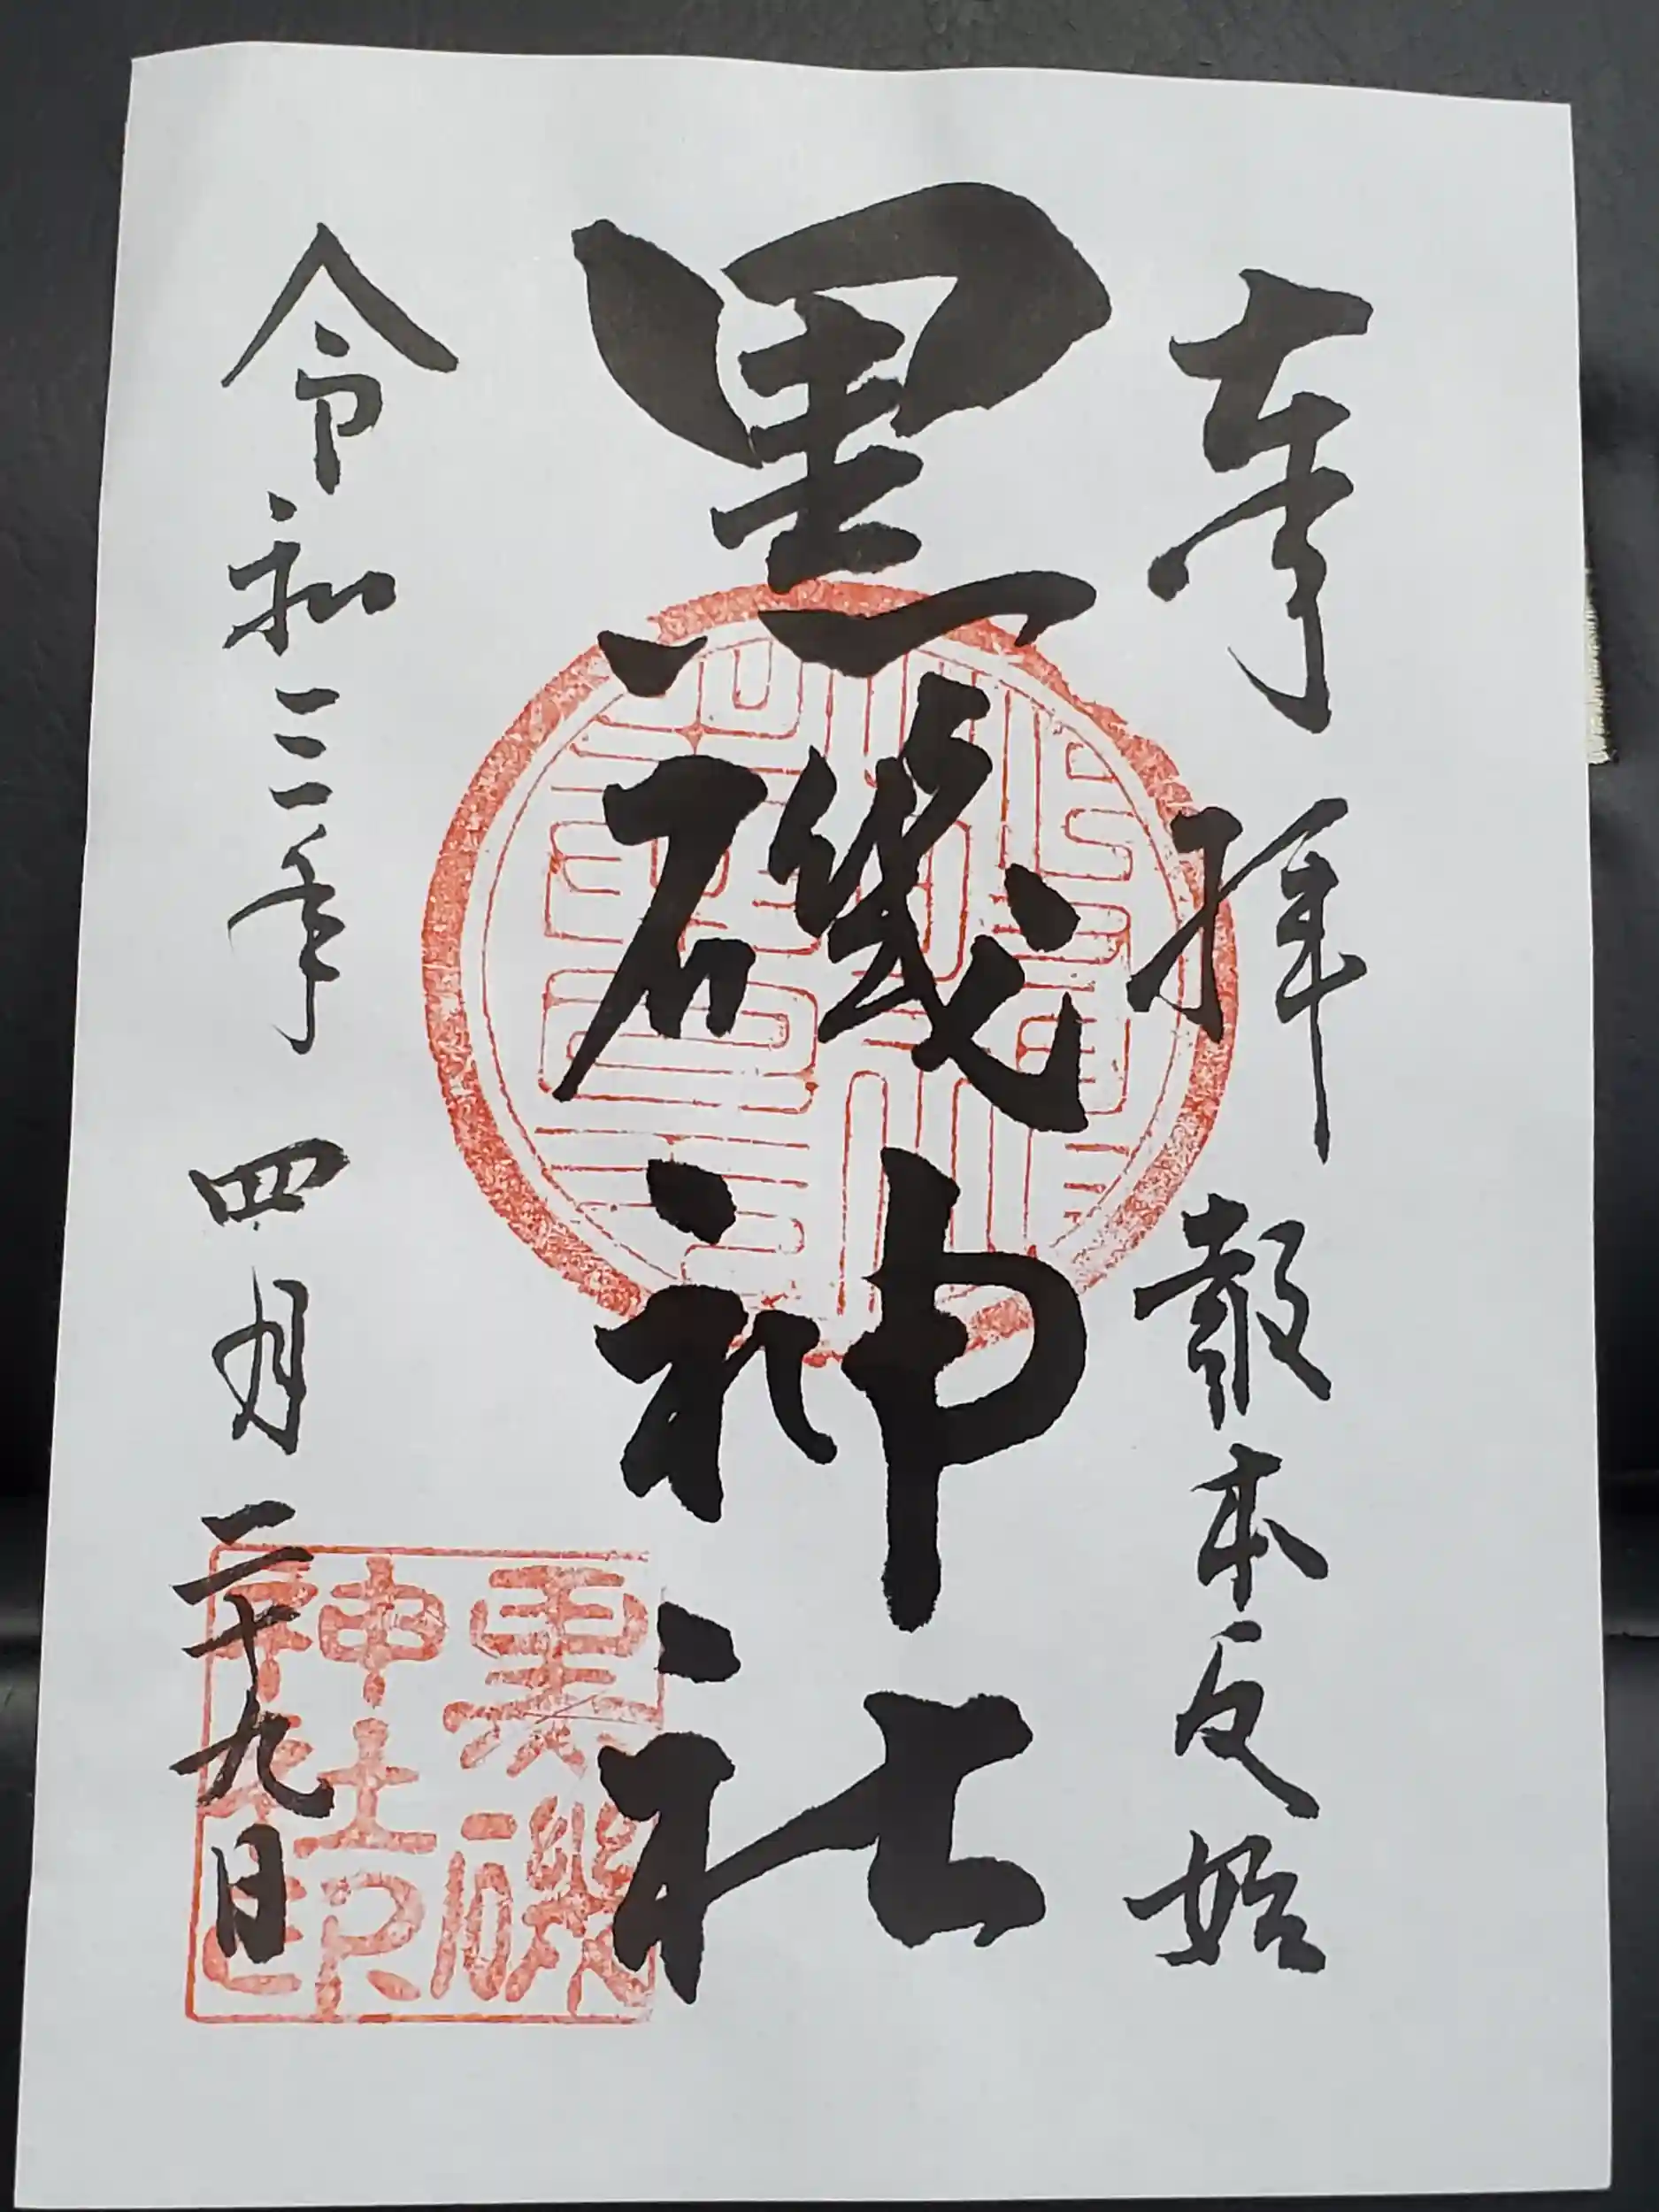 奉拝 報本反始
黒磯神社
令和三年 四月二十九日
黒磯
神社印